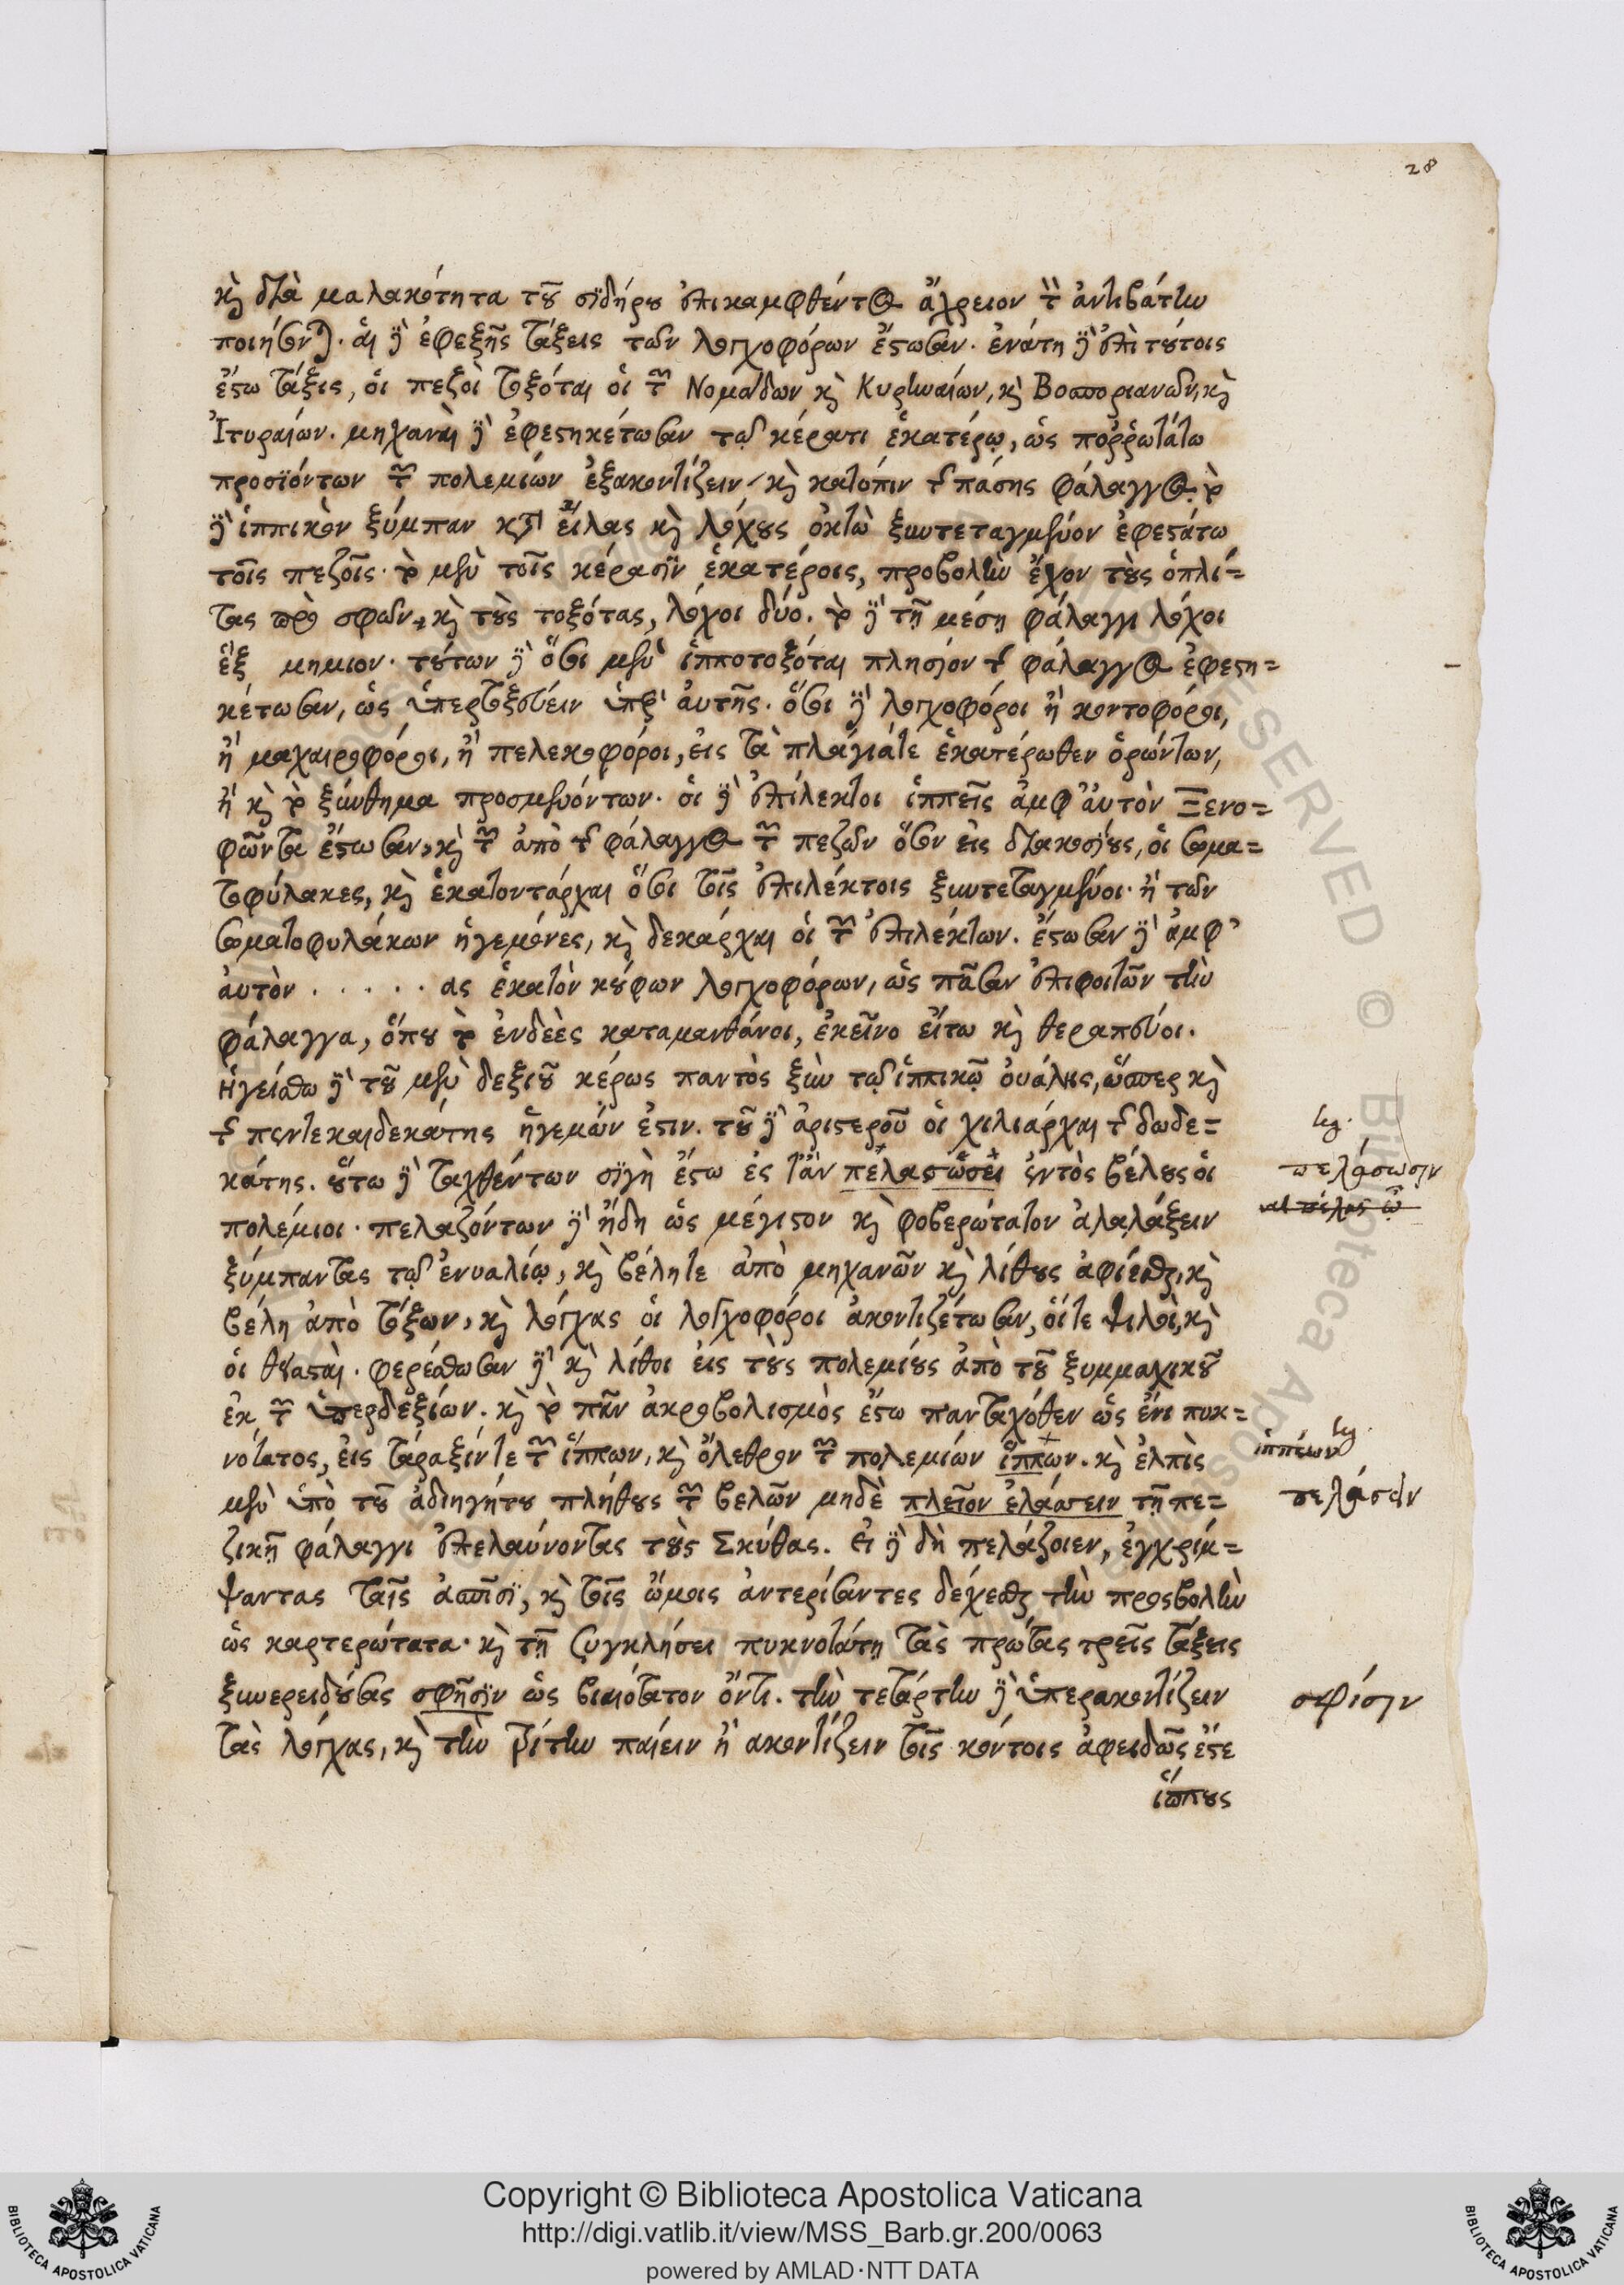 28
καὶ διὰ μαλακότητα τοῦ σιδήρου ἐπικαμφθέντος ἄχρειον τὸν ἀντιβάτην
ποιήσονται. αἱ δὲ ἐφεξῆς τάξεις τῶν λογχοφόρων ἔστωσαν. ἐνάτη δὲ ἐπὶ τούτοις
ἔστω τάξις, οἱ πεζοὶ τοξόται οἱ τῶν Νομάδων καὶ Κυρηναίων, καὶ Βοσποριανῶν, καὶ
Ἰτυραίων. μηχαναὶ δὲ ἐφεστηκέτωσαν τῷ κέρατι ἑκατέρῳ, ὡς πορρωτάτω
προσϊόντων τῶν πολεμίων ἐξακοντίζειν, καὶ κατόπιν τῆς πάσης φάλαγγος. τὸ
δὲ ἱππικὸν ξύμπαν κατὰ εἴλας καὶ λόχους ὀκτὼ ξυντεταγμένον ἐφεστάτω
τοῖς πεζοῖς. τὸ μὲν τοῖς κέρασιν ἑκατέροις, προβολὴν ἔχον τοὺς ὁπλί=
τας πρὸ σφῶν, καὶ τοὺς τοξότας, λόχοι δύο. τὸ δὲ τῇ μέσῃ φάλαγγι λόχοι
ἓξ μημιον. τούτων δὲ ὅσοι μὲν ἱπποτοξόται πλησίον τῆς φάλαγγος ἐφεστη=
κέτωσαν, ὡς ὑπερτοξεύειν ὑπὲρ αὐτῆς. ὅσοι δὲ λογχοφόροι ἢ κοντοφόροι,
ἢ μαχαιροφόροι, ἢ πελεκοφόροι, εἰς τὰ πλάγιά τε ἑκατέρωθεν ὁρώντων,
ἢ καὶ τὸ ξύνθημα προσμενόντων. οἱ δὲ ἐπίλεκτοι ἱππεῖς ἀμφ' αὐτὸν Ξενο=
φῶντα ἔστωσαν, καὶ τῶν ἀπὸ τῆς φάλαγγος τῶν πεζῶν ὅσον εἰς διακοσίους, οἱ σωμα=
τοφύλακες, καὶ ἑκατοντάρχαι ὅσοι τοῖς ἐπιλέκτοις ξυντεταγμένοι. ἢ τῶν
σωματοφυλάκων ἡγεμόνες, καὶ δεκάρχαι οἱ τῶν ἐπιλέκτων. ἔστωσαν δὲ ἀμφ'
αὐτὸν . . . . . ας ἑκατὸν κούφων λογχοφόρων, ὡς πᾶσαν ἐπιφοιτῶν τὴν
φάλαγγα, ὅπου τὸ ἐνδεὲς καταμανθάνοι, ἐκεῖνο εἴτω καὶ θεραπεύοι.
Ἡγείσθω δὲ τοῦ μὲν δεξιοῦ κέρως παντὸς ξὺν τῷ ἱππικῷ Οὐάλης, ὥσπερ καὶ
τῆς πεντεκαιδεκάτης ἡγεμών ἐστιν. τοῦ δὲ ἀριστεροῦ οἱ χιλιάρχαι τῆς δωδε=
κάτης. οὕτω δὲ ταχθέντων σιγὴ ἔστω ἐς τ' ἂν πέλας ὥσει ἐντὸς βέλους οἱ
πολέμιοι. πελαζόντων δὲ ἤδη ὡς μέγιστον καὶ φοβερώτατον ἀλαλάξειν
ξύμπαντας τῷ ἐνυαλίῳ, καὶ βέλη τε ἀπὸ μηχανῶν καὶ λίθους ἀφίεσθαι, καὶ
βέλη ἀπὸ τόξων, καὶ λόγχας οἱ λογχοφόροι ἀκοντιζέτωσαν, οἵ τε ψιλοὶ, καὶ
οἱ θυασταὶ. φερέσθωσαν δὲ καὶ λίθοι εἰς τοὺς πολεμίους ἀπὸ τοῦ ξυμμαχικοῦ
ἐκ τῶν ὑπερδεξίων. καὶ τὸ πᾶν ἀκροβολισμὸς ἔστω πανταχόθεν ὡς ἔνι πυκ=
νότατος, εἰς τάραξίν τε τῶν ἵππων, καὶ ὄλεθρον τῶν πολεμίων ἵππων. καὶ ἐλπὶς
μὲν ὑπὸ τοῦ ἀδιηγήτου πλήθους τῶν βελῶν μηδὲ πλεῖον ἐλάσειν τῇ πε=
ζικῇ φάλαγγι ἐπελαύνοντας τοὺς Σκύθας. εἰ δὲ δὴ πελάζοιεν, ἐγχρίμ=
ψαντας ταῖς ἀσπῖσι, καὶ τοῖς ὤμοις ἀντερίσαντες δέχεσθαι τὴν προσβολὴν
ὡς καρτερώτατα. καὶ τῇ ζυγκλήσει πυκνοτάτῃ τὰς πρώτας τρεῖς τάξεις
ξυνερειδούσας σφῆσιν ὡς βιαιότατον ὄντι. τὴν τετάρτην δὲ ὑπερακοντίζειν
τὰς λόγχας, καὶ τὴν τρίτην παίειν ἢ ἀκοντίζειν τοῖς κόντοις ἀφειδῶς ἔς τε
ἵππους
leg.
πελάσωσιν
leg.
ἱππέων
πελάσειν
σφίσιν
Copyright © Biblioteca Apostolica Vaticana
http://digi.vatlib.it/view/MSS_Barb.gr.200/0063
powered by AMLAD·NTT DATA
BIBLIOTECA APOSTOLICA VATICANA
BIBLIOTECA APOSTOLICA VATICANA